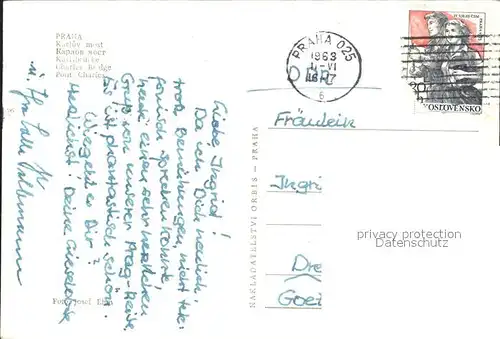 PRAHA
Karlův most
Карлов мост
Karlsbrücke
Charles Bridge
Pont Charles
Liebe Ingrid!
Da ich Dich neulich,
trotz Bemühungen, nicht tele-
fonisch sprechen konnte
heute einen sehr herzlichen
Gruß von unserer Prag-Reise.
Es ist phantastisch schön.
Wie geht es Dir?
Herzlichst! Deine
u.
Foto Josef
NAKLADATELSTVÍ ORBIS — PRAHA
PRAHA 025
1963
6
DDR
ČESKOSLOVENSKO
Fräulein
Ingri
Dre
Goet
privacy protection
Datenschutz